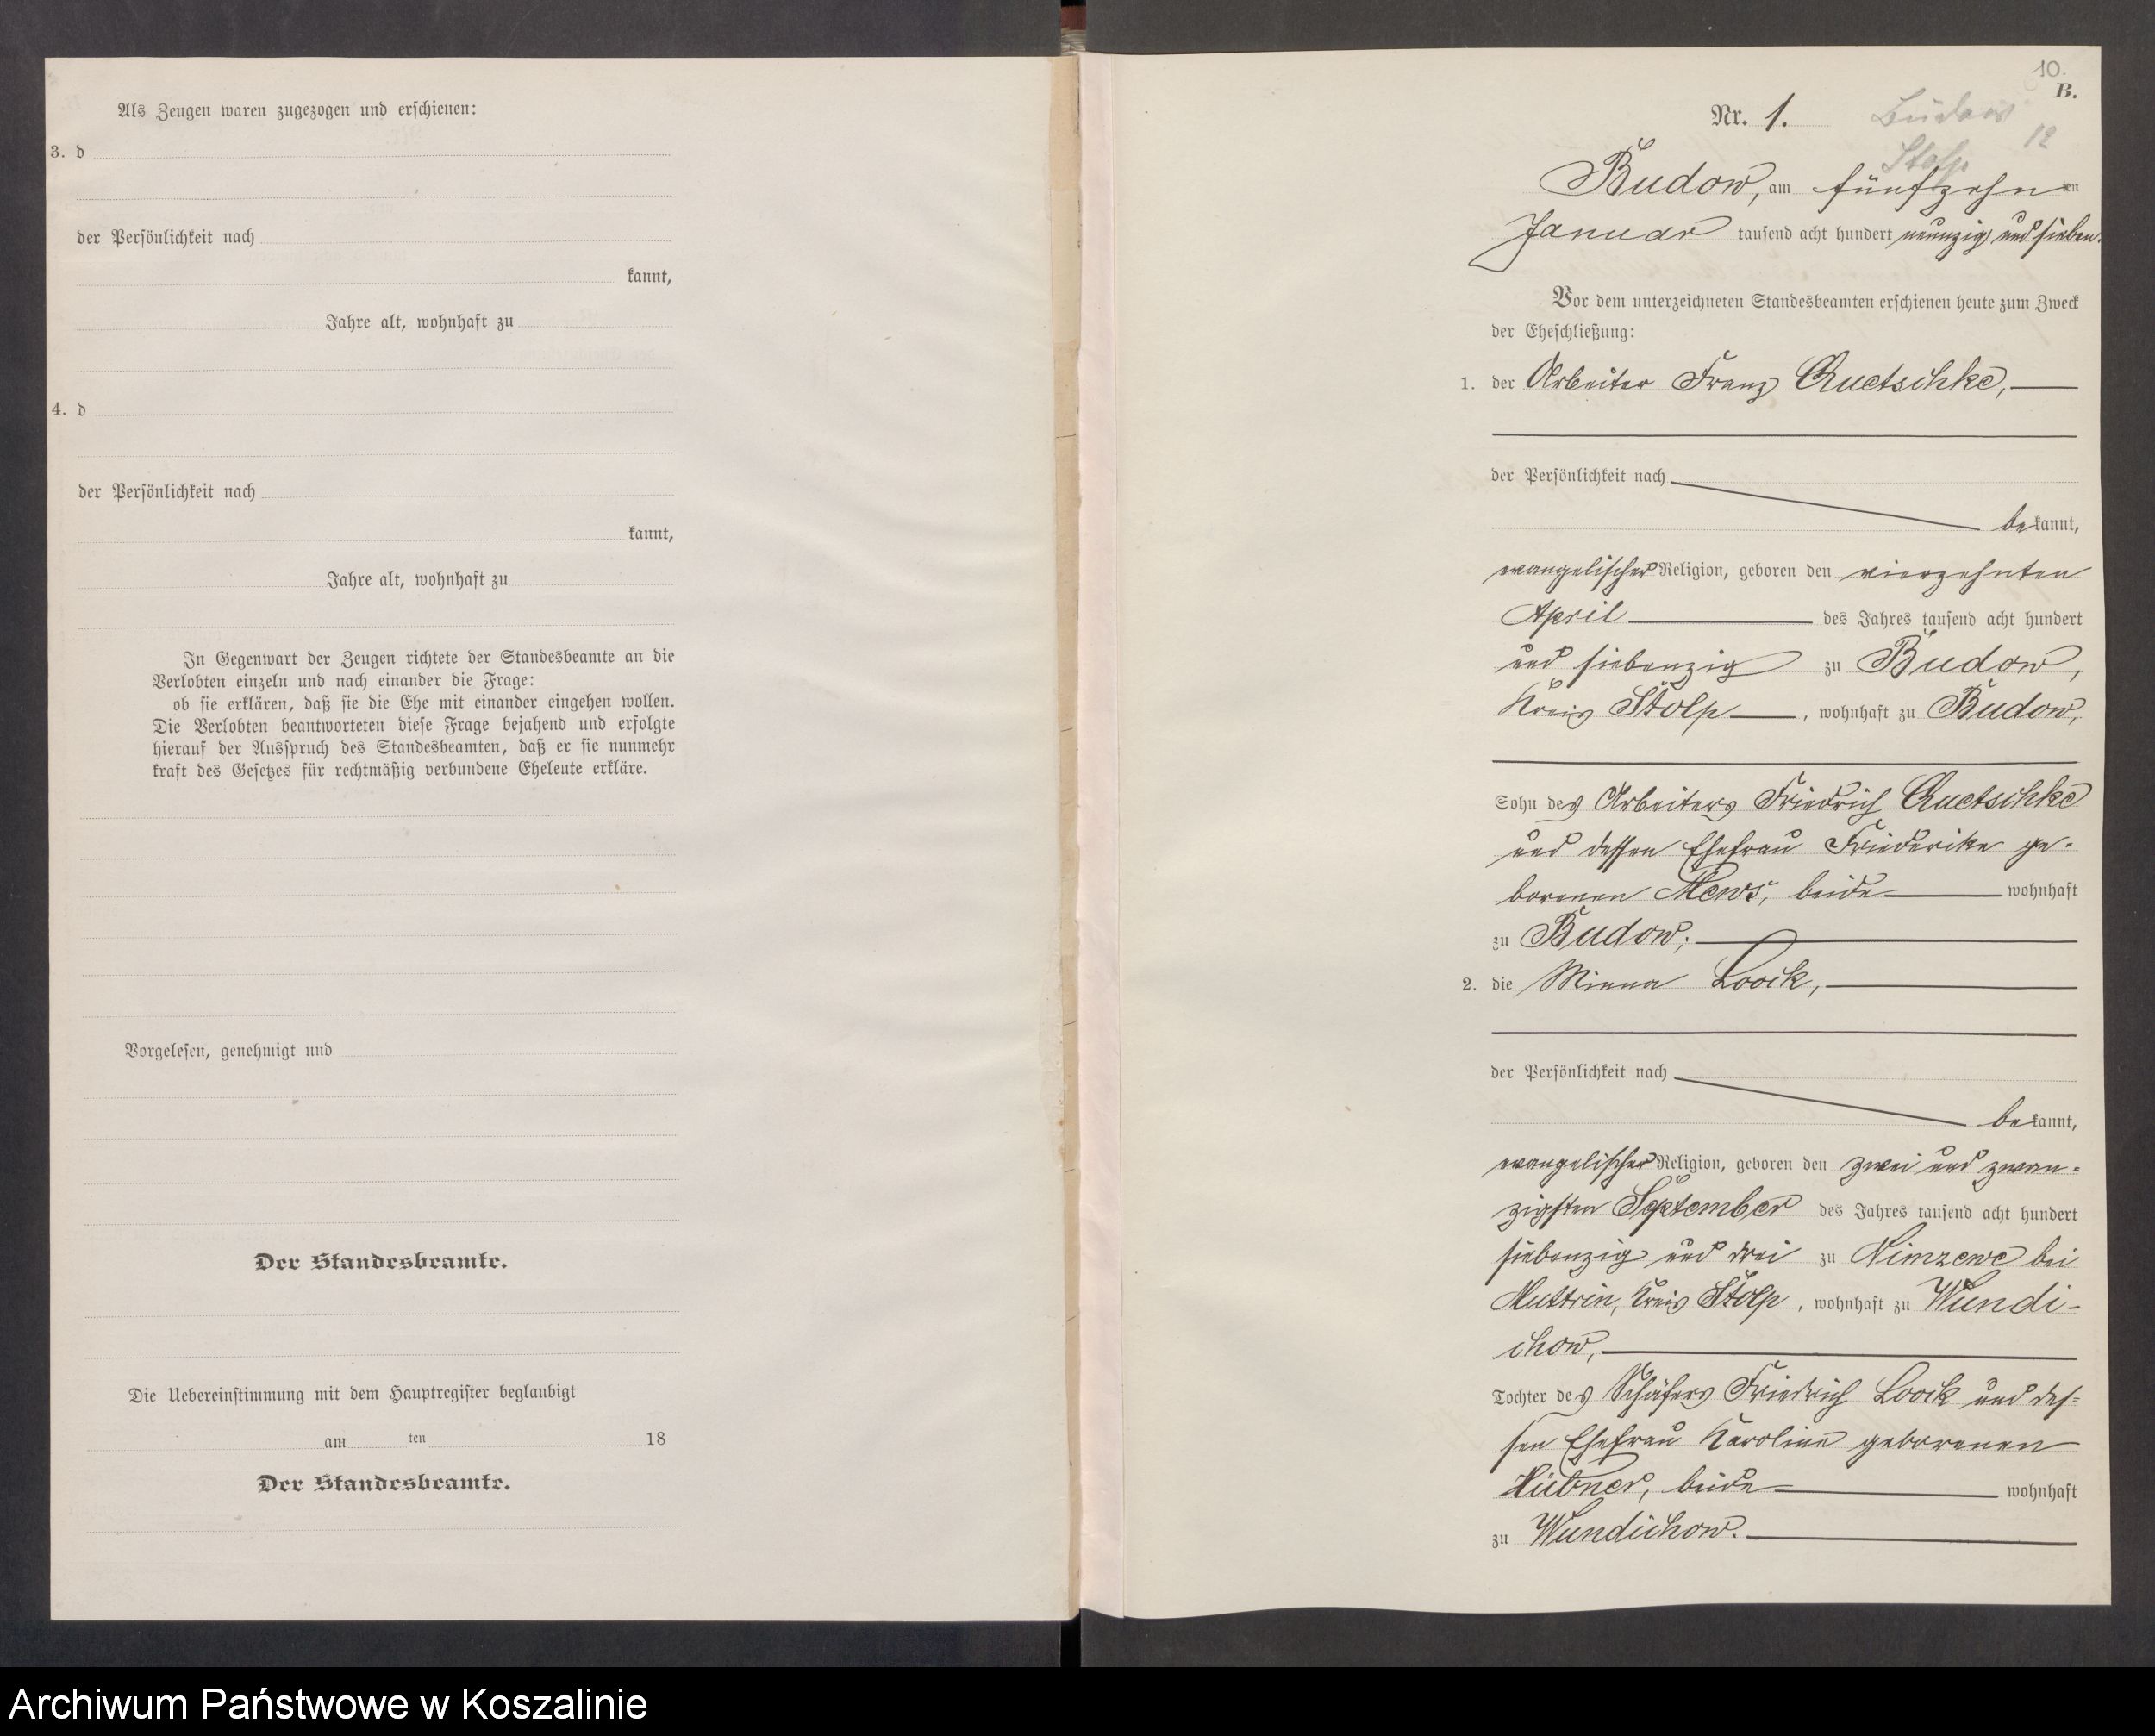 Als Zeugen waren zugezogen und erschienen:
3. d
der Persönlichkeit nach
kannt,
Jahre alt, wohnhaft zu
4. d
der Persönlichkeit nach
kannt,
Jahre alt, wohnhaft zu
In Gegenwart der Zeugen richtete der Standesbeamte an die
Verlobten einzeln und nach einander die Frage:
ob sie erklären, daß sie die Ehe mit einander eingehen wollen.
Die Verlobten beantworteten diese Frage bejahend und erfolgte
hierauf der Ausspruch des Standesbeamten, daß er sie nunmehr
kraft des Gesetzes für rechtmäßig verbundene Eheleute erkläre.
Vorgelesen, genehmigt und
Der Standesbeamte.
Die Uebereinstimmung mit dem Hauptregister beglaubigt
am ten 18
Der Standesbeamte.
10.
B.
Nr. 1.
Budow
12
Stolp
Budow, am fünfzehnten
Januar tausend acht hundert neunzig und sieben.
Vor dem unterzeichneten Standesbeamten erschienen heute zum Zweck
der Eheschließung:
1. der Arbeiter Franz Quetschke,
der Persönlichkeit nach
bekannt,
evangelischer Religion, geboren den vierzehnten
April des Jahres tausend acht hundert
und siebenzig zu Budow,
Kreis Stolp, wohnhaft zu Budow,
Sohn des Arbeiters Friedrich Quetschke
und dessen Ehefrau Friederike ge-
borenen Mews, beide wohnhaft
zu Budow;
2. die Minna Loock,
der Persönlichkeit nach
bekannt,
evangelischer Religion, geboren den zwei und zwan-
zigsten September des Jahres tausend acht hundert
siebenzig und drei zu Nimzewe bei
Muttrin, Kreis Stolp, wohnhaft zu Wundi-
chow,
Tochter des Schäfers Friedrich Loock und des-
sen Ehefrau Karoline geborenen
Hübner, beide wohnhaft
zu Wundichow.
Archiwum Państwowe w Koszalinie